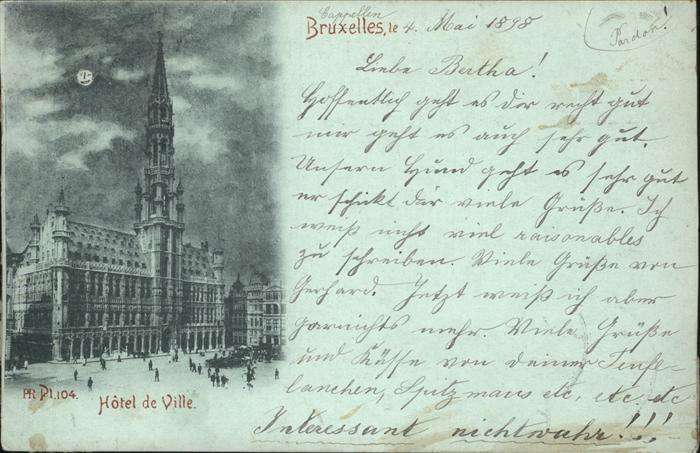 Cappellen
Bruxelles, le 4. Mai 1898
Pardon!
Liebe Bertha!
Hoffentlich geht es dir recht gut
mir geht es auch sehr gut.
Unserm Hund geht es sehr gut
er schikt dir viele Grüße. Ich
weiß nicht viel raisonables
zu schreiben. Viele Grüße von
Gerhard. Jetzt weiß ich aber
garnichts mehr. Viele Grüße
und Küsse von deiner Teufe-
lanchen, Spitzmaus etc. etc. etc
Interessant nichtwahr!!!
PR Pl. 104.
Hôtel de Ville.